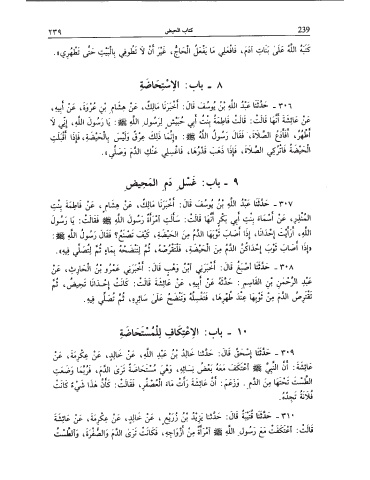 ٢٣٩ كتاب الحيض 239
كَتَبَهُ اللَّهُ عَلَى بَنَاتِ آدَمَ، فَافْعَلِي مَا يَفْعَلُ الْحَاجُّ، غَيْرَ أَنْ لَا تَطُوفِي بِالْبَيْتِ حَتَّى تَطْهُرِي».
٨ - باب: الِاسْتِحَاضَةِ
٣٠٦ - حَدَّثَنَا عَبْدُ اللَّهِ بْنُ يُوسُفَ قَالَ: أَخْبَرَنَا مَالِكٌ، عَنْ هِشَامِ بْنِ عُرْوَةَ، عَنْ أَبِيهِ،
عَنْ عَائِشَةَ أَنَّهَا قَالَتْ: قَالَتْ فَاطِمَةُ بِنْتُ أَبِي حُبَيْشٍ لِرَسُولِ اللَّهِ ﷺ: يَا رَسُولَ اللَّهِ، إِنِّي لَا
أَطْهُرُ، أَفَأَدَعُ الصَّلَاةَ، فَقَالَ رَسُولُ اللَّهِ ﷺ: «إِنَّمَا ذَلِكِ عِرْقٌ وَلَيْسَ بِالْحَيْضَةِ، فَإِذَا أَقْبَلَتِ
الْحَيْضَةُ فَاتْرُكِي الصَّلَاةَ، فَإِذَا ذَهَبَ قَدْرُهَا، فَاغْسِلِي عَنْكِ الدَّمَ وَصَلِّي».
٩ - باب: غَسْلِ دَمِ الْمَحِيضِ
٣٠٧ - حَدَّثَنَا عَبْدُ اللَّهِ بْنُ يُوسُفَ قَالَ: أَخْبَرَنَا مَالِكٌ، عَنْ هِشَامٍ، عَنْ فَاطِمَةَ بِنْتِ
الْمُنْذِرِ، عَنْ أَسْمَاءَ بِنْتِ أَبِي بَكْرٍ أَنَّهَا قَالَتْ: سَأَلَتِ امْرَأَةٌ رَسُولَ اللَّهِ ﷺ فَقَالَتْ: يَا رَسُولَ
اللَّهِ، أَرَأَيْتَ إِحْدَانَا، إِذَا أَصَابَ ثَوْبَهَا الدَّمُ مِنَ الْحَيْضَةِ، كَيْفَ تَصْنَعُ؟ فَقَالَ رَسُولُ اللَّهِ ﷺ:
«إِذَا أَصَابَ ثَوْبَ إِحْدَاكُنَّ الدَّمُ مِنَ الْحَيْضَةِ، فَلْتَقْرُصْهُ، ثُمَّ لِتَنْضَحْهُ بِمَاءٍ ثُمَّ لِتُصَلِّي فِيهِ».
٣٠٨ - حَدَّثَنَا أَصْبَغُ قَالَ: أَخْبَرَنِي ابْنُ وَهْبٍ قَالَ: أَخْبَرَنِي عَمْرُو بْنُ الْحَارِثِ، عَنْ
عَبْدِ الرَّحْمَنِ بْنِ الْقَاسِمِ: حَدَّثَهُ عَنْ أَبِيهِ، عَنْ عَائِشَةَ قَالَتْ: كَانَتْ إِحْدَانَا تَحِيضُ، ثُمَّ
تَقْتَرِصُ الدَّمَ مِنْ ثَوْبِهَا عِنْدَ طُهْرِهَا، فَتَغْسِلُهُ وَتَنْضَحُ عَلَى سَائِرِهِ، ثُمَّ تُصَلِّي فِيهِ.
١٠ - باب: الِاعْتِكَافِ لِلْمُسْتَحَاضَةِ
٣٠٩ - حَدَّثَنَا إِسْحَقُ قَالَ: حَدَّثَنَا خَالِدُ بْنُ عَبْدِ اللَّهِ، عَنْ خَالِدٍ، عَنْ عِكْرِمَةَ، عَنْ
عَائِشَةَ: أَنَّ النَّبِيَّ ﷺ اعْتَكَفَ مَعَهُ بَعْضُ نِسَائِهِ، وَهِيَ مُسْتَحَاضَةٌ تَرَى الدَّمَ، فَرُبَّمَا وَضَعَتِ
الطَّسْتَ تَحْتَهَا مِنَ الدَّمِ. وَزَعَمَ: أَنَّ عَائِشَةَ رَأَتْ مَاءَ الْعُصْفُرِ، فَقَالَتْ: كَأَنَّ هَذَا شَيْءٌ كَانَتْ
فُلَانَةُ تَجِدُهُ.
٣١٠ - حَدَّثَنَا قُتَيْبَةُ قَالَ: حَدَّثَنَا يَزِيدُ بْنُ زُرَيْعٍ، عَنْ خَالِدٍ، عَنْ عِكْرِمَةَ، عَنْ عَائِشَةَ
قَالَتْ: اعْتَكَفَتْ مَعَ رَسُولِ اللَّهِ ﷺ امْرَأَةٌ مِنْ أَزْوَاجِهِ، فَكَانَتْ تَرَى الدَّمَ وَالصُّفْرَةَ، وَالطَّسْتُ